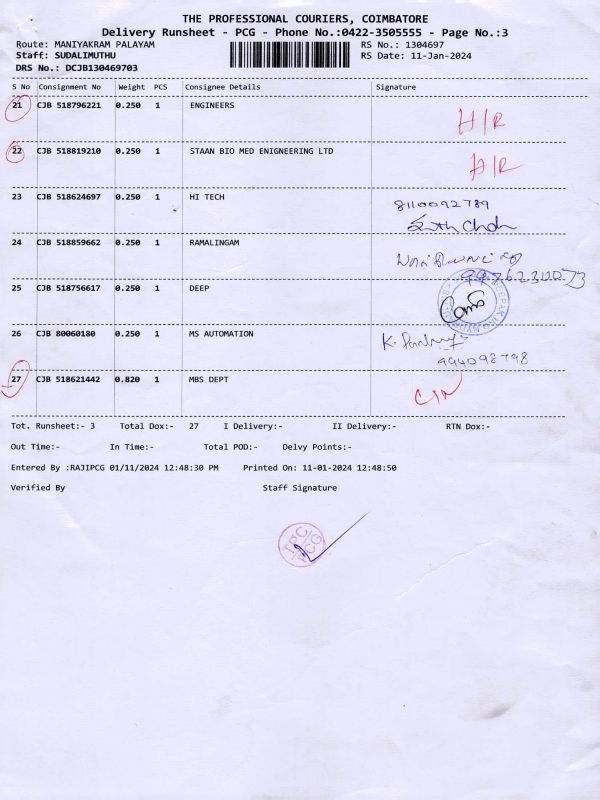 THE PROFESSIONAL COURIERS, COIMBATORE
Delivery Runsheet - PCG - Phone No.:0422-3505555 - Page No.:3
Route: MANIYAKRAM PALAYAM RS No.: 1304697
Staff: SUDALIMUTHU RS Date: 11-Jan-2024
DRS No.: DCJB130469703
S No Consignment No Weight PCS Consignee Details Signature
21 CJB 518796221 0.250 1 ENGINEERS
H/R
22 CJB 518819210 0.250 1 STAAN BIO MED ENIGNEERING LTD
H/R
23 CJB 518624697 0.250 1 HI TECH
8110092789
24 CJB 518859662 0.250 1 RAMALINGAM
9976230073
25 CJB 518756617 0.250 1 DEEP
26 CJB 80060180 0.250 1 MS AUTOMATION
K.
994098798
27 CJB 518621442 0.820 1 MBS DEPT
Tot. Runsheet:- 3 Total Dox:- 27 I Delivery:- II Delivery:- RTN Dox:-
Out Time:- In Time:- Total POD:- Delvy Points:-
Entered By :RAJIPCG 01/11/2024 12:48:30 PM Printed On: 11-01-2024 12:48:50
Verified By Staff Signature
TPC
PCG